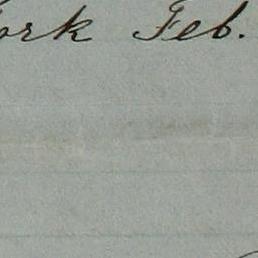 ork Feb.